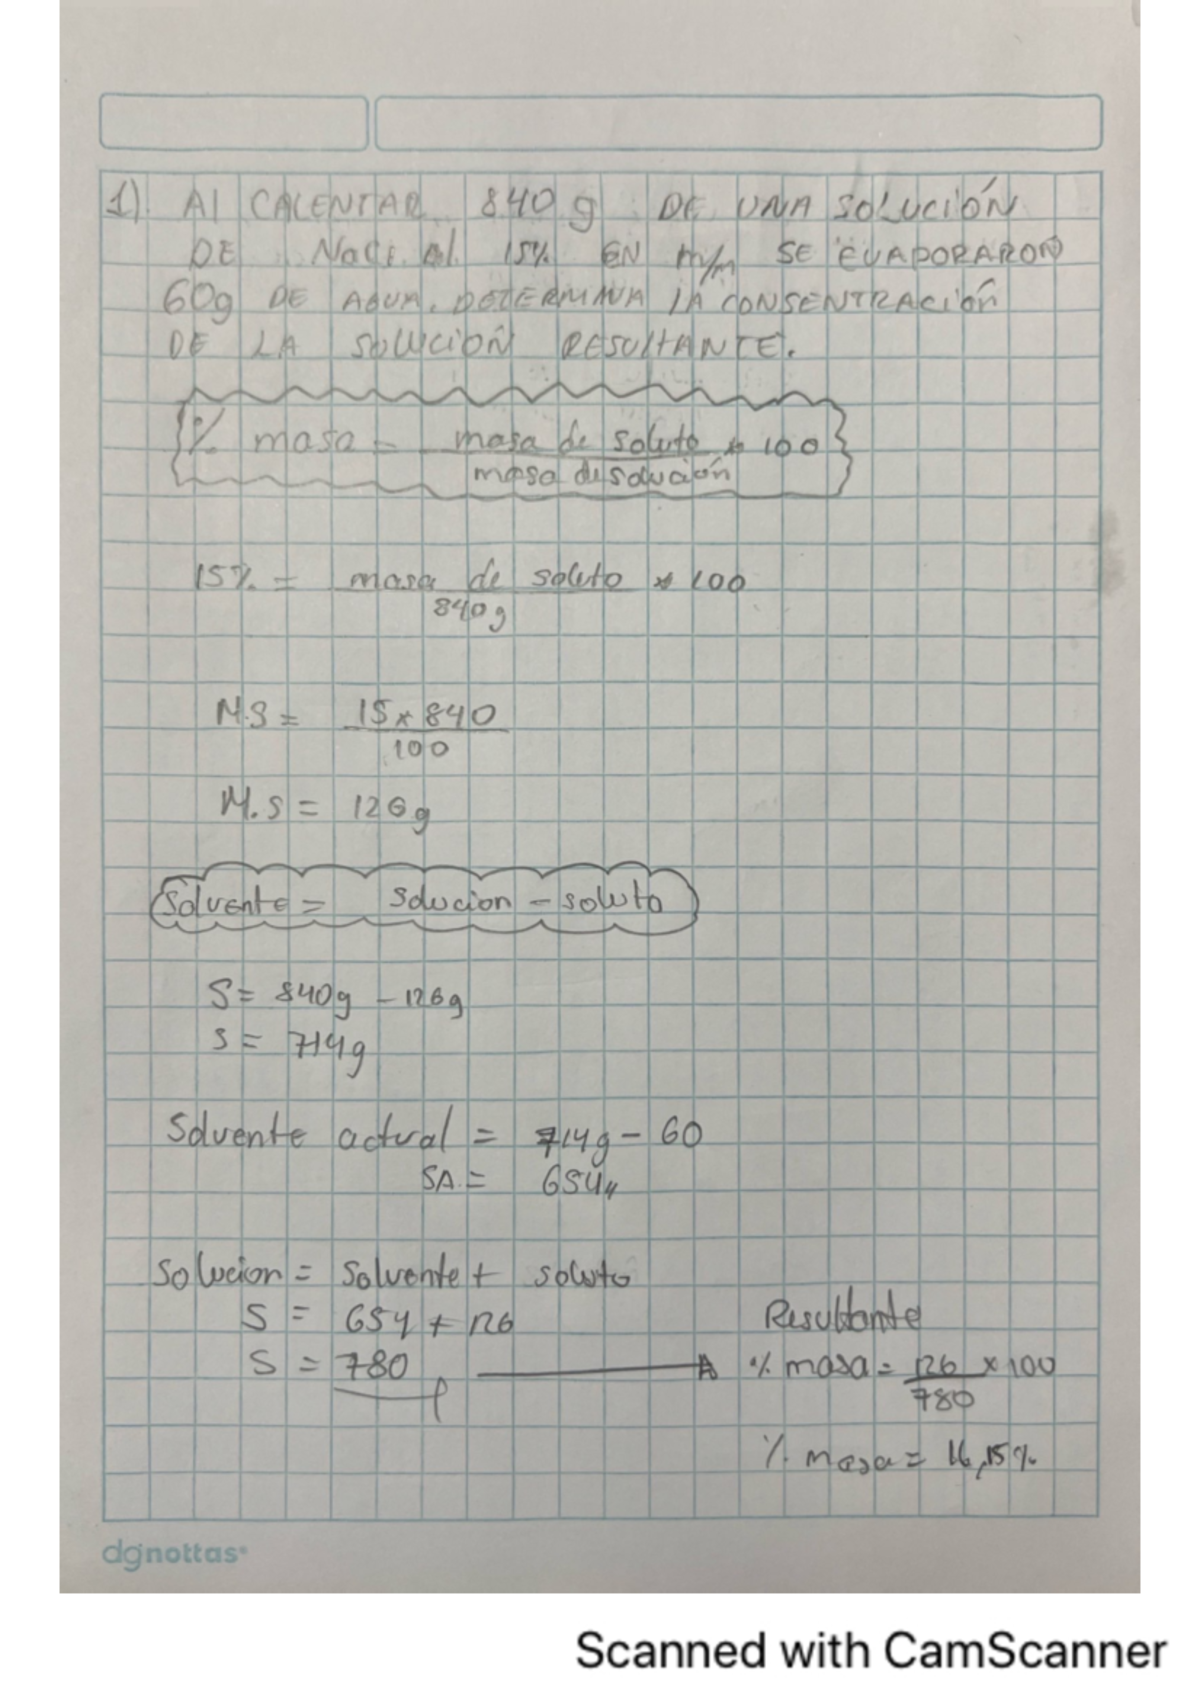 1). Al CALENTAR 840 g DE UNA SOLUCIÓN
DE NaCl Al 15% EN m/m SE EVAPORARON
60g DE AGUA. DETERMINA LA CONSENTRACIÓN
DE LA SOLUCIÓN RESULTANTE.
% masa = masa de soluto * 100
masa de solución
15% = masa de soluto * 100
840g
M.S = 15 * 840
100
M.S = 126g
Solvente = Solucion - soluto
S = 840g - 126g
S = 714g
Solvente actual = 714g - 60
SA. = 654
Solucion = Solvente + soluto
S = 654 + 126
Resultante
S = 780 % masa = 126 x 100
780
% masa = 16,15%
dgnottas
Scanned with CamScanner